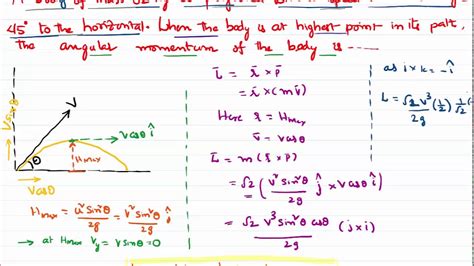 A body of mass √2 kg is projected with a speed
45° to the horizontal. When the body is at highest point in its path,
the angular momentum of the body is -----
L̄ = r̄ × p̄
= r̄ × (m v̄)
Here r = Hmax
v̄ = vcosθ
L̄ = m (r × p)
= √2 ( v² sin²θ / 2g ĵ × vcosθ î )
= √2 v³ sin²θ cosθ / 2g (j × i)
as j × k = -i
L = √2 v³ / 2g (1/2) 1/√2
vsinθ ĵ
v
vcosθ î
θ
Hmax
vcosθ
Hmax = u² sin²θ / 2g = v² sin²θ / 2g ĵ
→ at Hmax Vy = vsinθ = 0